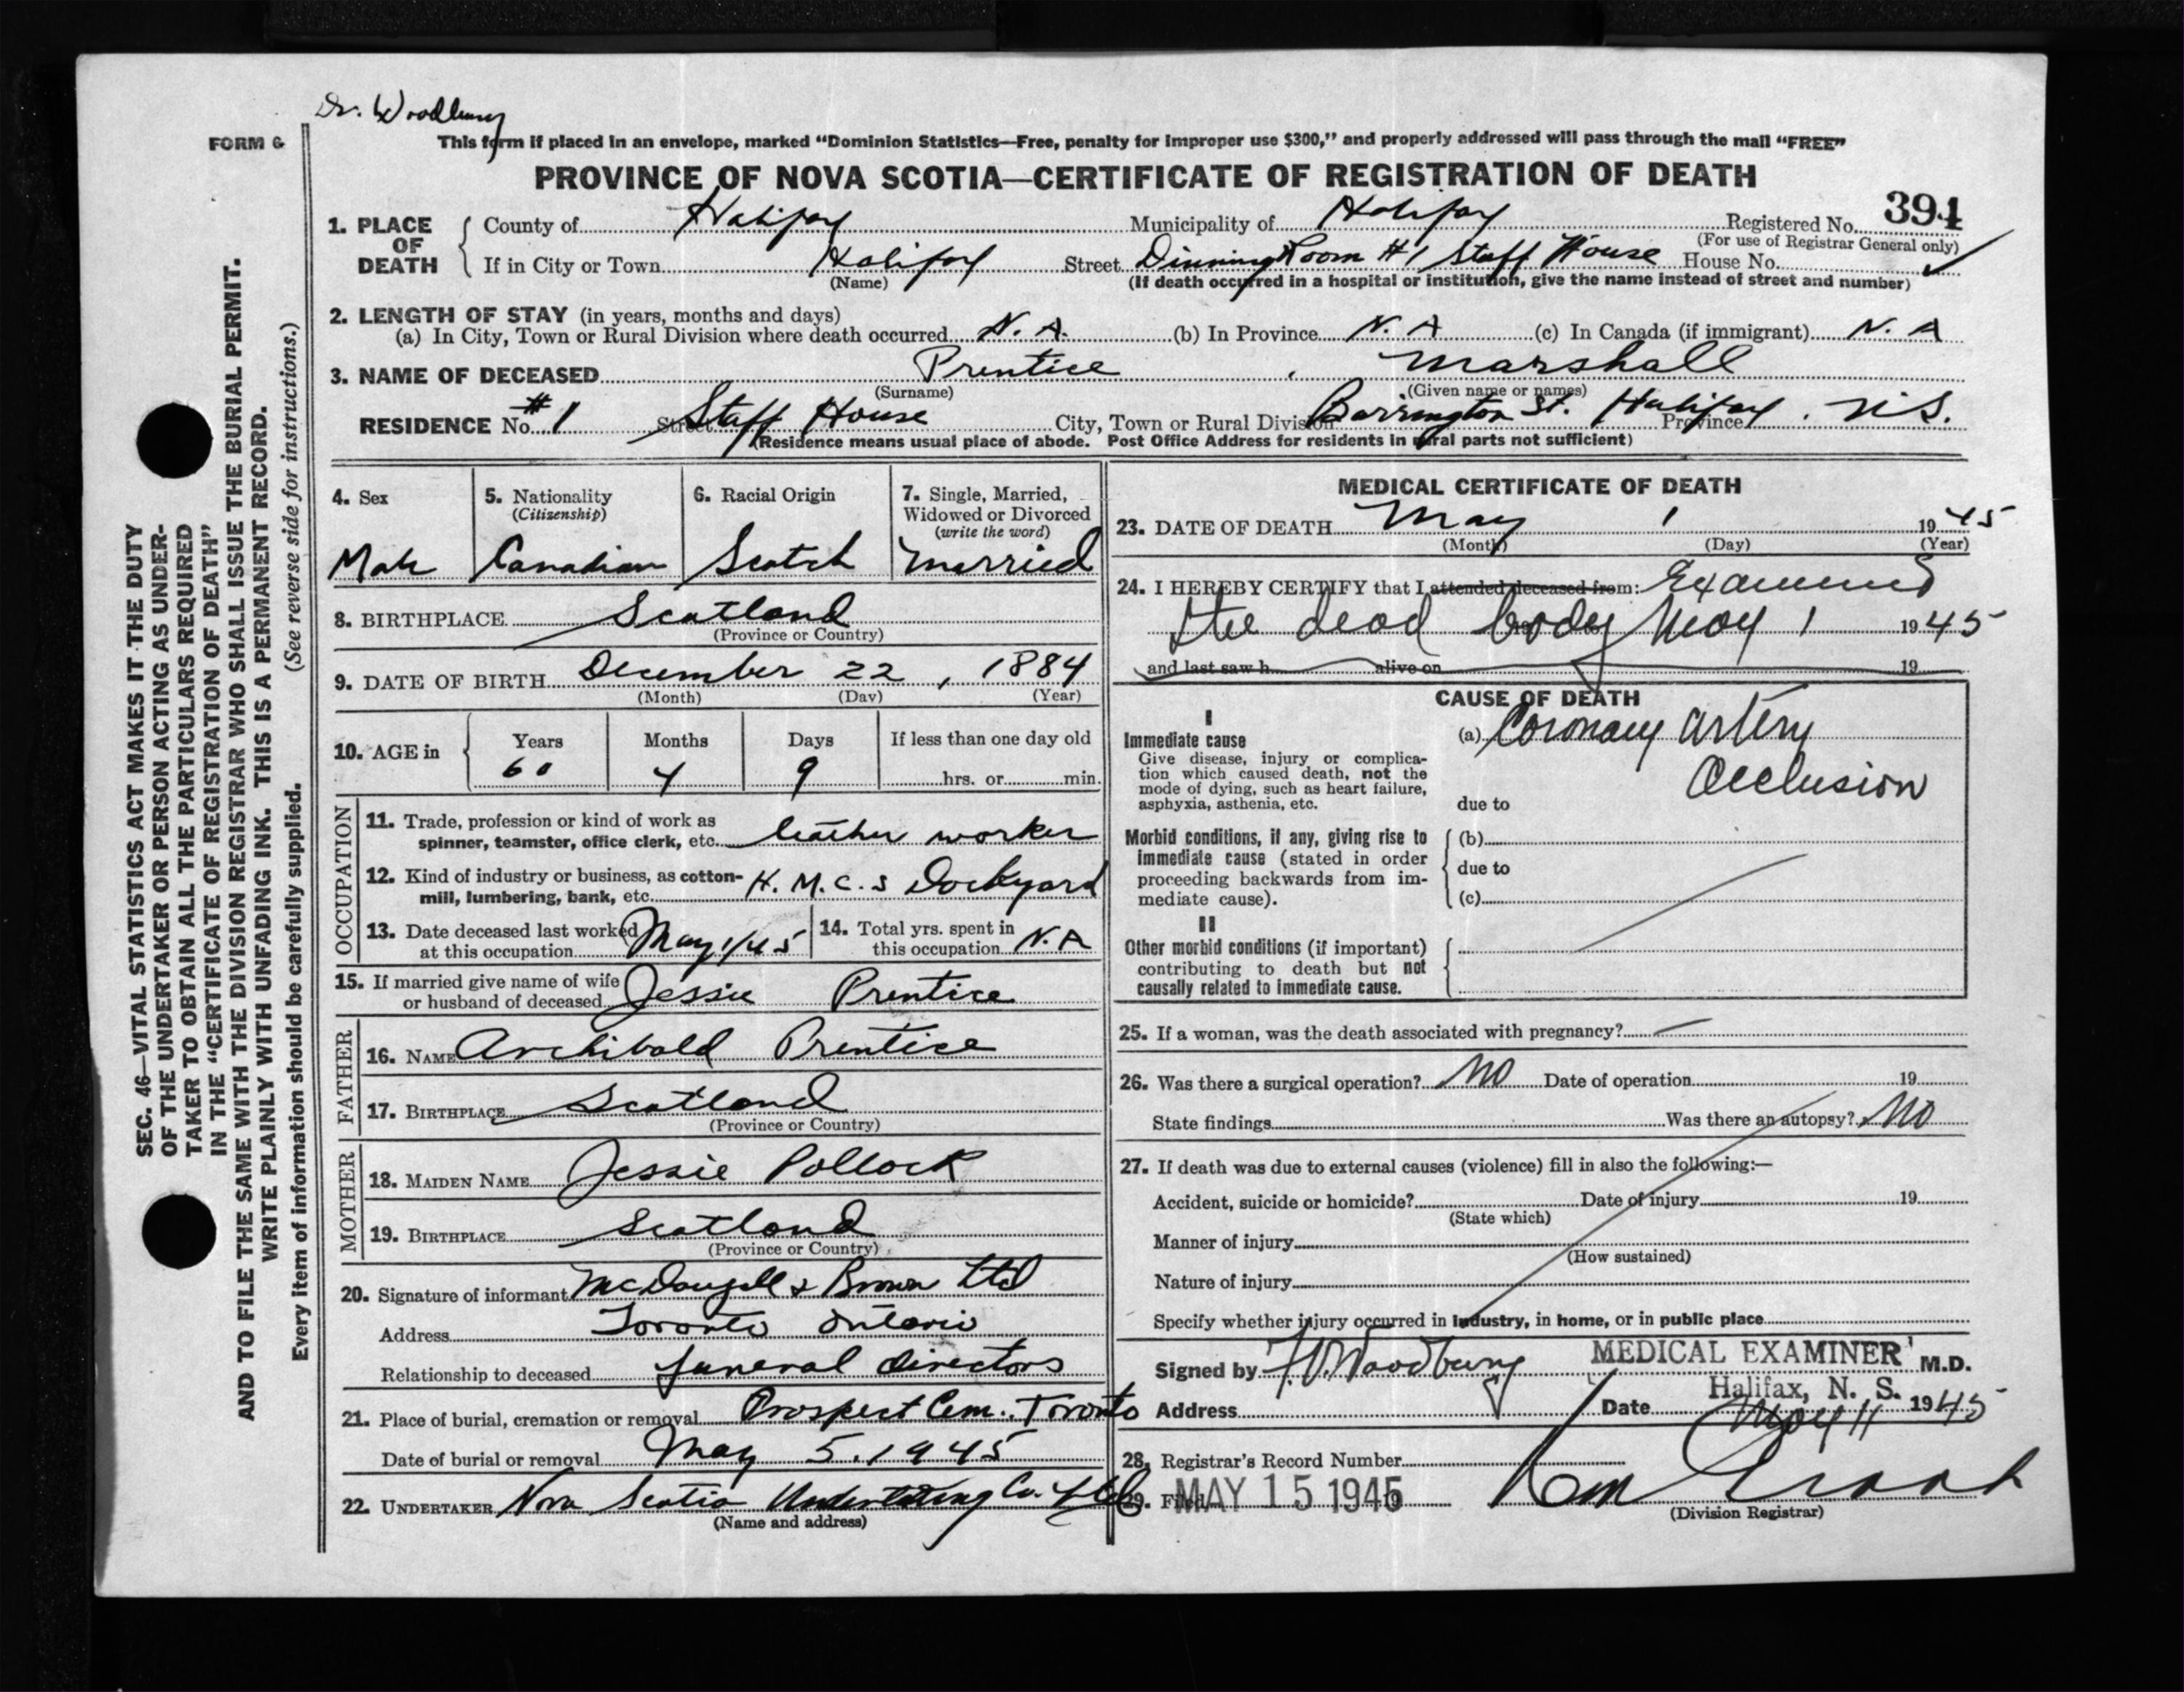 Dr. Woodbury
FORM 6
This form if placed in an envelope, marked “Dominion Statistics—Free, penalty for improper use $300,” and properly addressed will pass through the mail “FREE”
PROVINCE OF NOVA SCOTIA—CERTIFICATE OF REGISTRATION OF DEATH
1. PLACE OF DEATH County of Halifax Municipality of Halifax Registered No. 394
(For use of Registrar General only)
If in City or Town Halifax Street Dinning Room #1 Staff House House No. ✓
(Name) (If death occurred in a hospital or institution, give the name instead of street and number)
2. LENGTH OF STAY (in years, months and days)
(a) In City, Town or Rural Division where death occurred N. A. (b) In Province N. A (c) In Canada (if immigrant) N. A
3. NAME OF DECEASED Prentice , Marshall
(Surname) (Given name or names)
RESIDENCE No. #1 Street Staff House City, Town or Rural Division Barrington St. Halifax. Province N.S.
(Residence means usual place of abode. Post Office Address for residents in rural parts not sufficient)
4. Sex
Male
5. Nationality
(Citizenship)
Canadian
6. Racial Origin
Scotch
7. Single, Married,
Widowed or Divorced
(write the word)
Married
8. BIRTHPLACE Scotland
(Province or Country)
9. DATE OF BIRTH December 22, 1884
(Month) (Day) (Year)
10. AGE in Years Months Days If less than one day old
60 4 9 hrs. or min.
OCCUPATION
11. Trade, profession or kind of work as
spinner, teamster, office clerk, etc. leather worker
12. Kind of industry or business, as cotton-
mill, lumbering, bank, etc. H. M. C. S Dockyard
13. Date deceased last worked
at this occupation May 1/45
14. Total yrs. spent in
this occupation N. A
15. If married give name of wife
or husband of deceased Jessie Prentice
FATHER
16. NAME Archibald Prentice
17. BIRTHPLACE Scotland
(Province or Country)
MOTHER
18. MAIDEN NAME Jessie Pollock
19. BIRTHPLACE Scotland
(Province or Country)
20. Signature of informant McDougall & Brown Ltd
Address Toronto Ontario
Relationship to deceased funeral directors
21. Place of burial, cremation or removal Prospect Cem. Toronto
Date of burial or removal May 5. 1945
22. UNDERTAKER Nova Scotia Undertaking Co. Ltd
(Name and address)
MEDICAL CERTIFICATE OF DEATH
23. DATE OF DEATH May 1 1945
(Month) (Day) (Year)
24. I HEREBY CERTIFY that I attended deceased from: Examined
the dead body May 1 1945
and last saw h alive on 19
CAUSE OF DEATH
I
Immediate cause
Give disease, injury or complica-
tion which caused death, not the
mode of dying, such as heart failure,
asphyxia, asthenia, etc.
(a) Coronary artery
Occlusion
due to
Morbid conditions, if any, giving rise to
immediate cause (stated in order
proceeding backwards from im-
mediate cause).
(b)
due to
(c)
II
Other morbid conditions (if important)
contributing to death but not
causally related to immediate cause.
25. If a woman, was the death associated with pregnancy? —
26. Was there a surgical operation? No Date of operation 19
State findings Was there an autopsy? No
27. If death was due to external causes (violence) fill in also the following:—
Accident, suicide or homicide? Date of injury 19
(State which)
Manner of injury
(How sustained)
Nature of injury
Specify whether injury occurred in industry, in home, or in public place
Signed by F.V. Woodbury MEDICAL EXAMINER M.D.
Halifax, N. S.
Address Date May 11 1945
28. Registrar's Record Number
29. Filed MAY 15 1945
(Division Registrar)
SEC. 46—VITAL STATISTICS ACT MAKES IT THE DUTY
OF THE UNDERTAKER OR PERSON ACTING AS UNDER-
TAKER TO OBTAIN ALL THE PARTICULARS REQUIRED
IN THE “CERTIFICATE OF REGISTRATION OF DEATH”
AND TO FILE THE SAME WITH THE DIVISION REGISTRAR WHO SHALL ISSUE THE BURIAL PERMIT.
WRITE PLAINLY WITH UNFADING INK. THIS IS A PERMANENT RECORD.
(See reverse side for instructions.)
Every item of information should be carefully supplied.